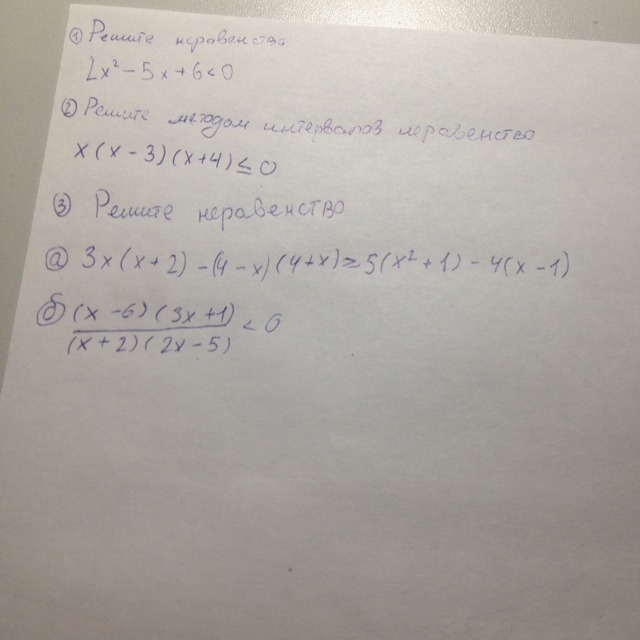 ① Решите неравенства
2x² - 5x + 6 < 0
② Решите методом интервалов неравенство
x(x - 3)(x + 4) ≤ 0
③ Решите неравенство
а) 3x(x + 2) - (4 - x)(4 + x) ≥ 5(x² + 1) - 4(x - 1)
б) (x - 6)(3x + 1)
(x + 2)(2x - 5) < 0